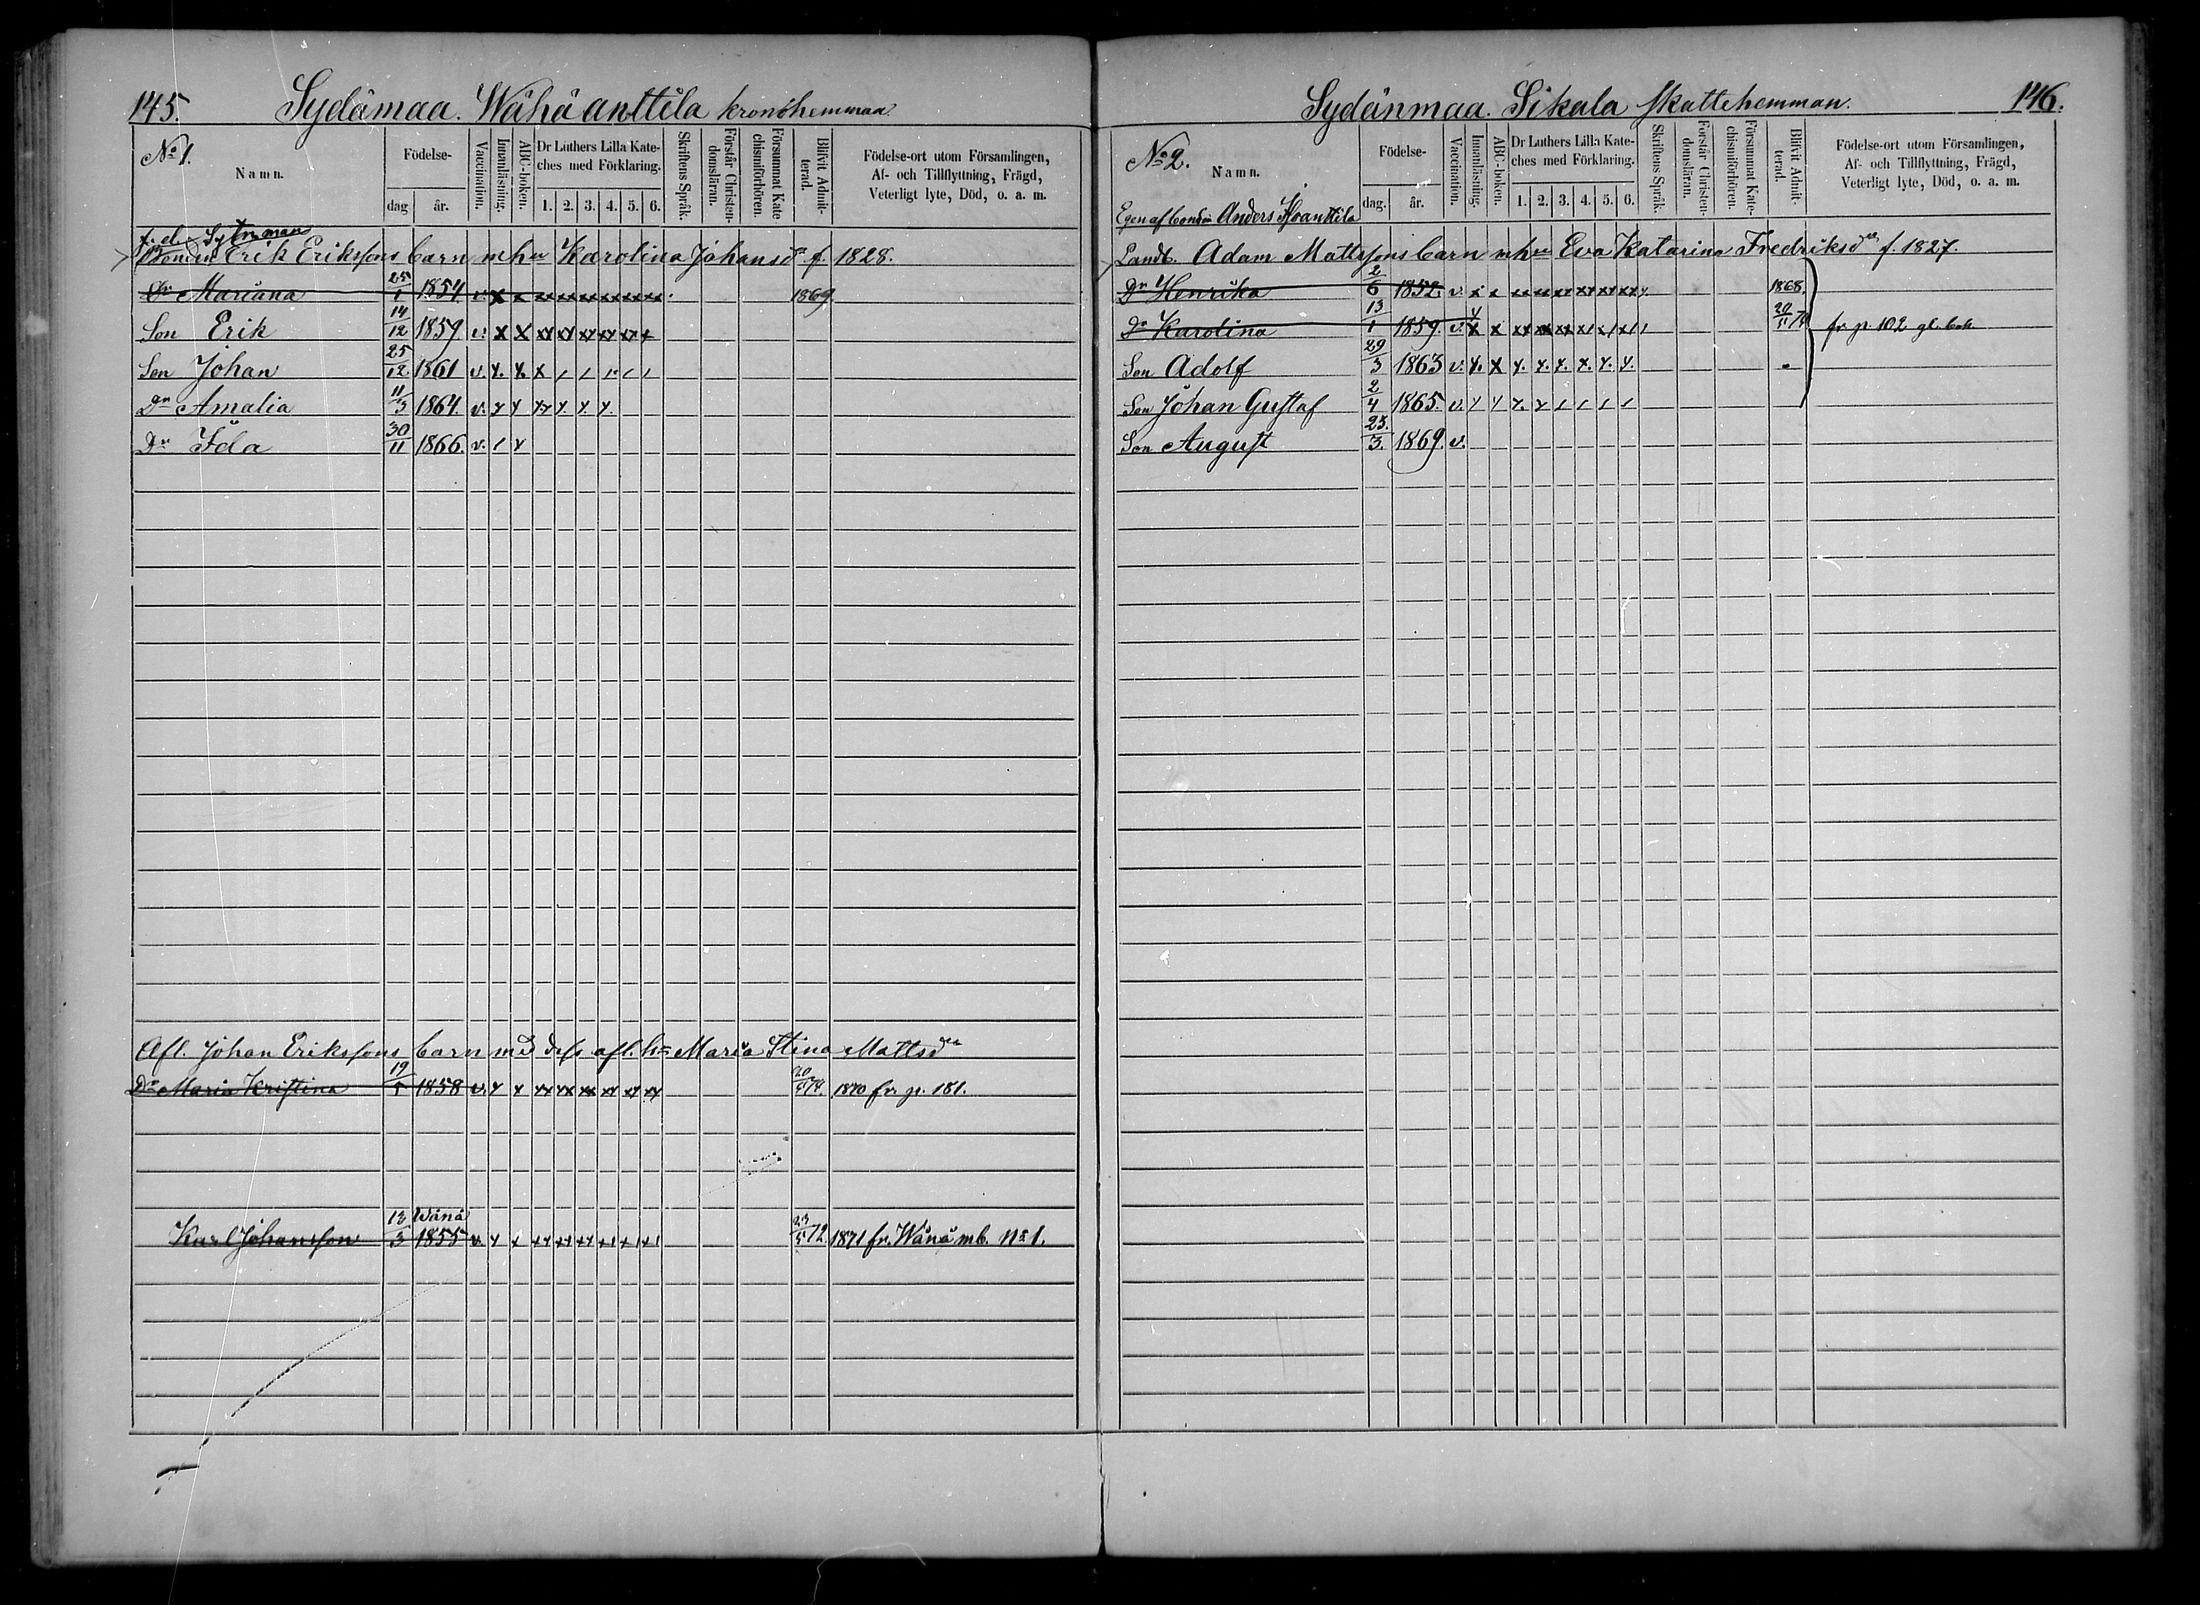 145. Sydämaa. Wähä anttila kronohemman.
No 1.
Namn. Födelse- dag år. Vaccination. Innanläsning. ABC-boken. Dr Luthers Lilla Kateches med Förklaring. 1. 2. 3. 4. 5. 6. Skriftens Språk. Förstår Christendomsläran. Försummat Katechismiförhören. Blifvit Admitterad. Födelse-ort utom Församlingen, Af- och Tillflyttning, Frägd, Veterligt lyte, Död, o. a. m.
f. d. Sytnman
Bonden Erik Erikssons barn m hu Karolina Johansdr f. 1828.
Dr Mariana 25/1 1854 v. x x xx xx xx xx xx xx 1869
Son Erik 14/12 1859 v. x x xx xx xx xx xx x
Son Johan 25/12 1861 v. x. x. x / / / / /
Dr Amalia 11/3 1864. v. x x xx x. x. x.
Dr Ida 30/11 1866. v. / x
Afl. Johan Erikssons barn med dess afl. h. Maria Stina Mattsdr
Dr Maria Kristina 19/5 1858 v. x x xx xx xx xx xx xx 20/5 74. 1870 fr. p. 181.
Wånå
Karl Johansson 13/3 1855 v. x x xx xx xx x/ x/ x/ 23/5 72. 1871 fr. Wånå mb. No 1.
Sydänmaa. Sikala skattehemman. 146.
No 2.
Namn. Födelse- dag. år. Vaccination. Innanläsning. ABC-boken. Dr Luthers Lilla Kateches med Förklaring. 1. 2. 3. 4. 5. 6. Skriftens Språk. Förstår Christendomsläran. Försummat Katechismiförhören. Blifvit Admitterad. Födelse-ort utom Församlingen, Af- och Tillflyttning, Frägd, Veterligt lyte, Död, o. a. m.
Egen af bonden Anders
Landb. Adam Mattssons barn m hu Eva Katarina Fredriksdr f. 1827.
Dr Henrika 2/6 1852. v. x x xx xx xx xx xx xx 1868.
Dr Karolina 13/1 1859. v. x x xx xx xx x/ x/ x/ 20/5 74 fr. p. 102 gl. bok.
Son Adolf 29/3 1863 v. x. x x. x. x. x. x. x.
Son Johan Gustaf 2/4 1865. v. x x x. x / / / /
Son August 23./3. 1869. v.